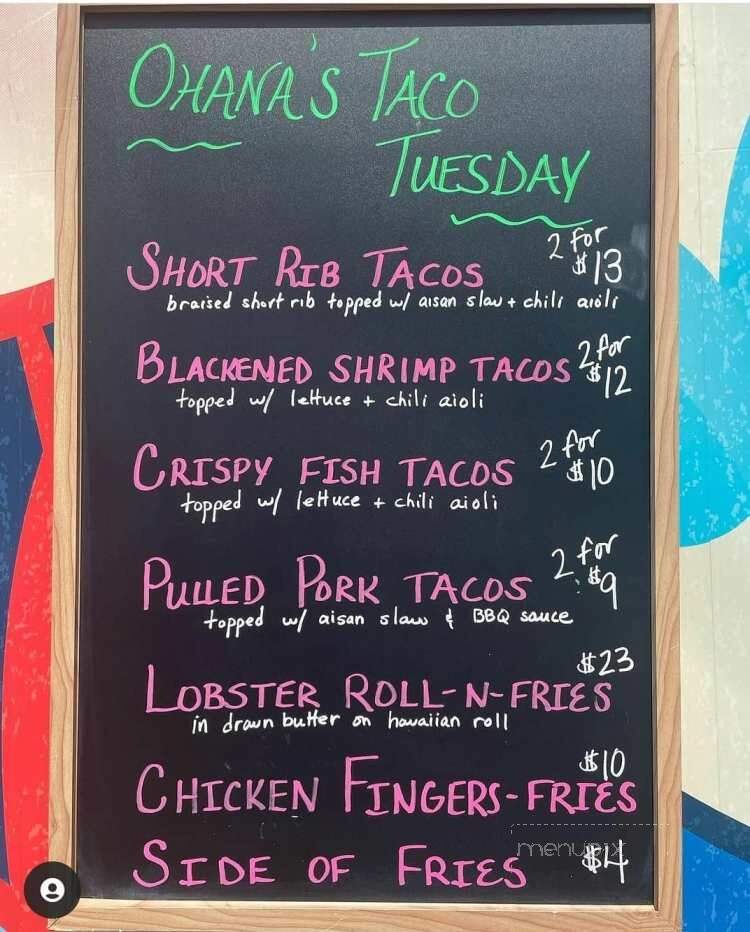 OHANA'S TACO
TUESDAY
2 for
SHORT RIB TACOS $13
braised short rib topped w/ aisan slaw + chili aioli
BLACKENED SHRIMP TACOS 2 for
$12
topped w/ lettuce + chili aioli
2 for
CRISPY FISH TACOS $10
topped w/ lettuce + chili aioli
2 for
PULLED PORK TACOS $9
topped w/ aisan slaw & BBQ sauce
$23
LOBSTER ROLL-N-FRIES
in drawn butter on hawaiian roll
$10
CHICKEN FINGERS-FRIES
menupix
SIDE OF FRIES $4